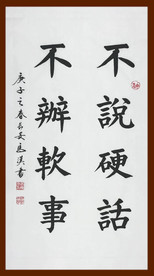 不說硬話
不辦軟事
庚子之春長安